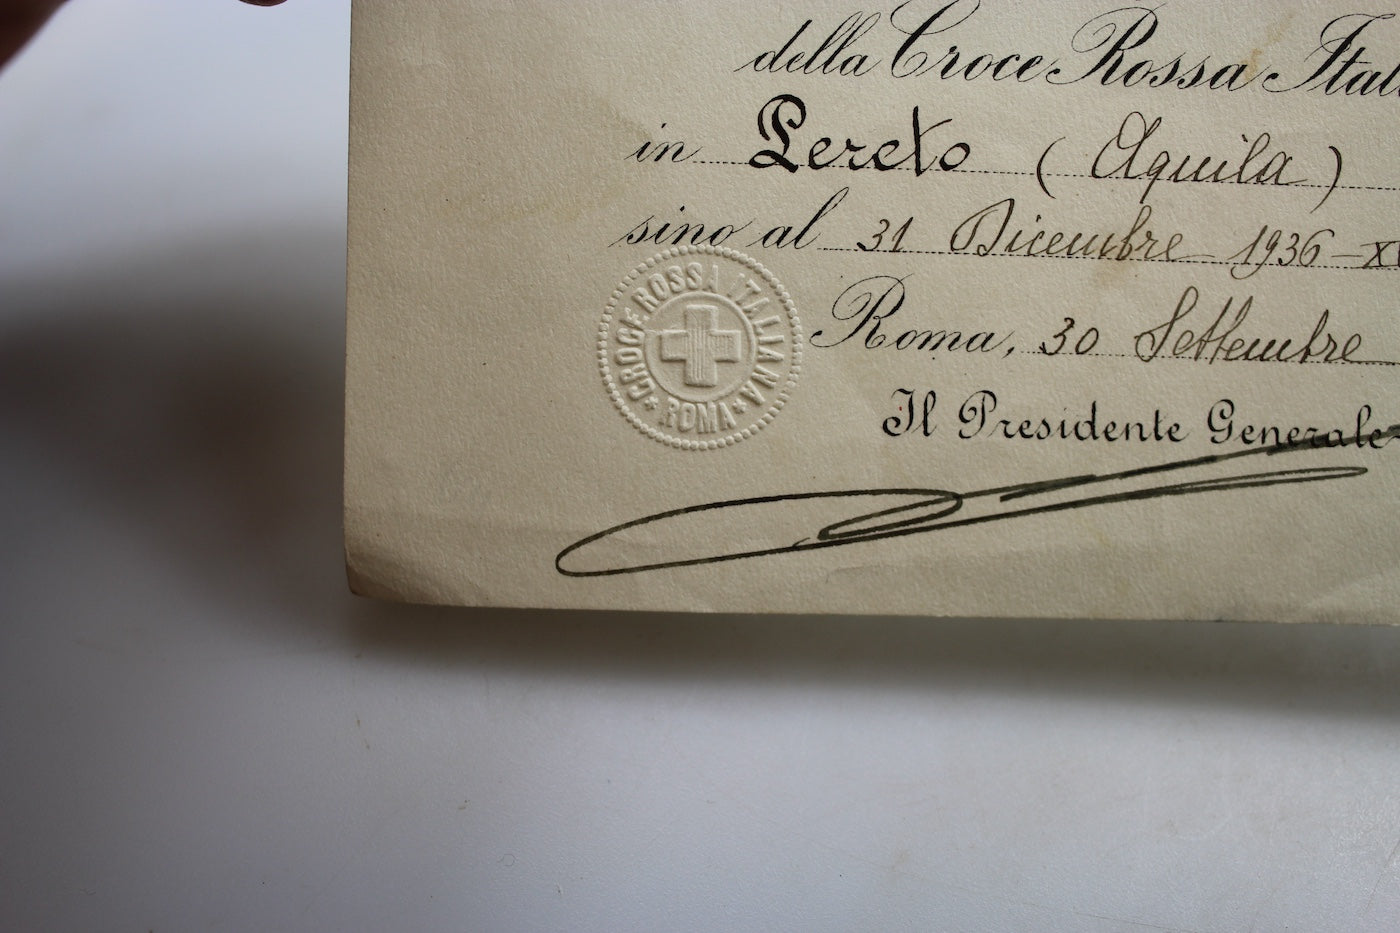 della Croce Rossa Ital
in Pereto (Aquila)
sino al 31 Dicembre 1936-X
CROCE ROSSA ITALIANA
* ROMA *
Roma, 30 Settembre
Il Presidente Generale